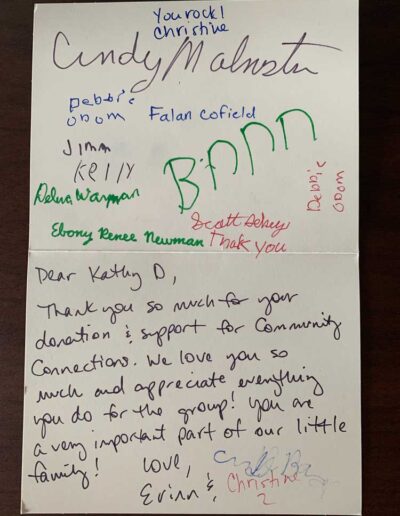 You rock!
Christine
Cindy
Debbie
Odom
Falan Cofield
Jimm
Kelly
Debbie
Odom
Scott
Thank you
Ebony Renee Newman
Dear Kathy D,
Thank you so much for your
donation & support for Community
Connections. We love you so
much and appreciate everything
you do for the group! You are
a very important part of our little
family!
Love,
Erinn &
Christine
2